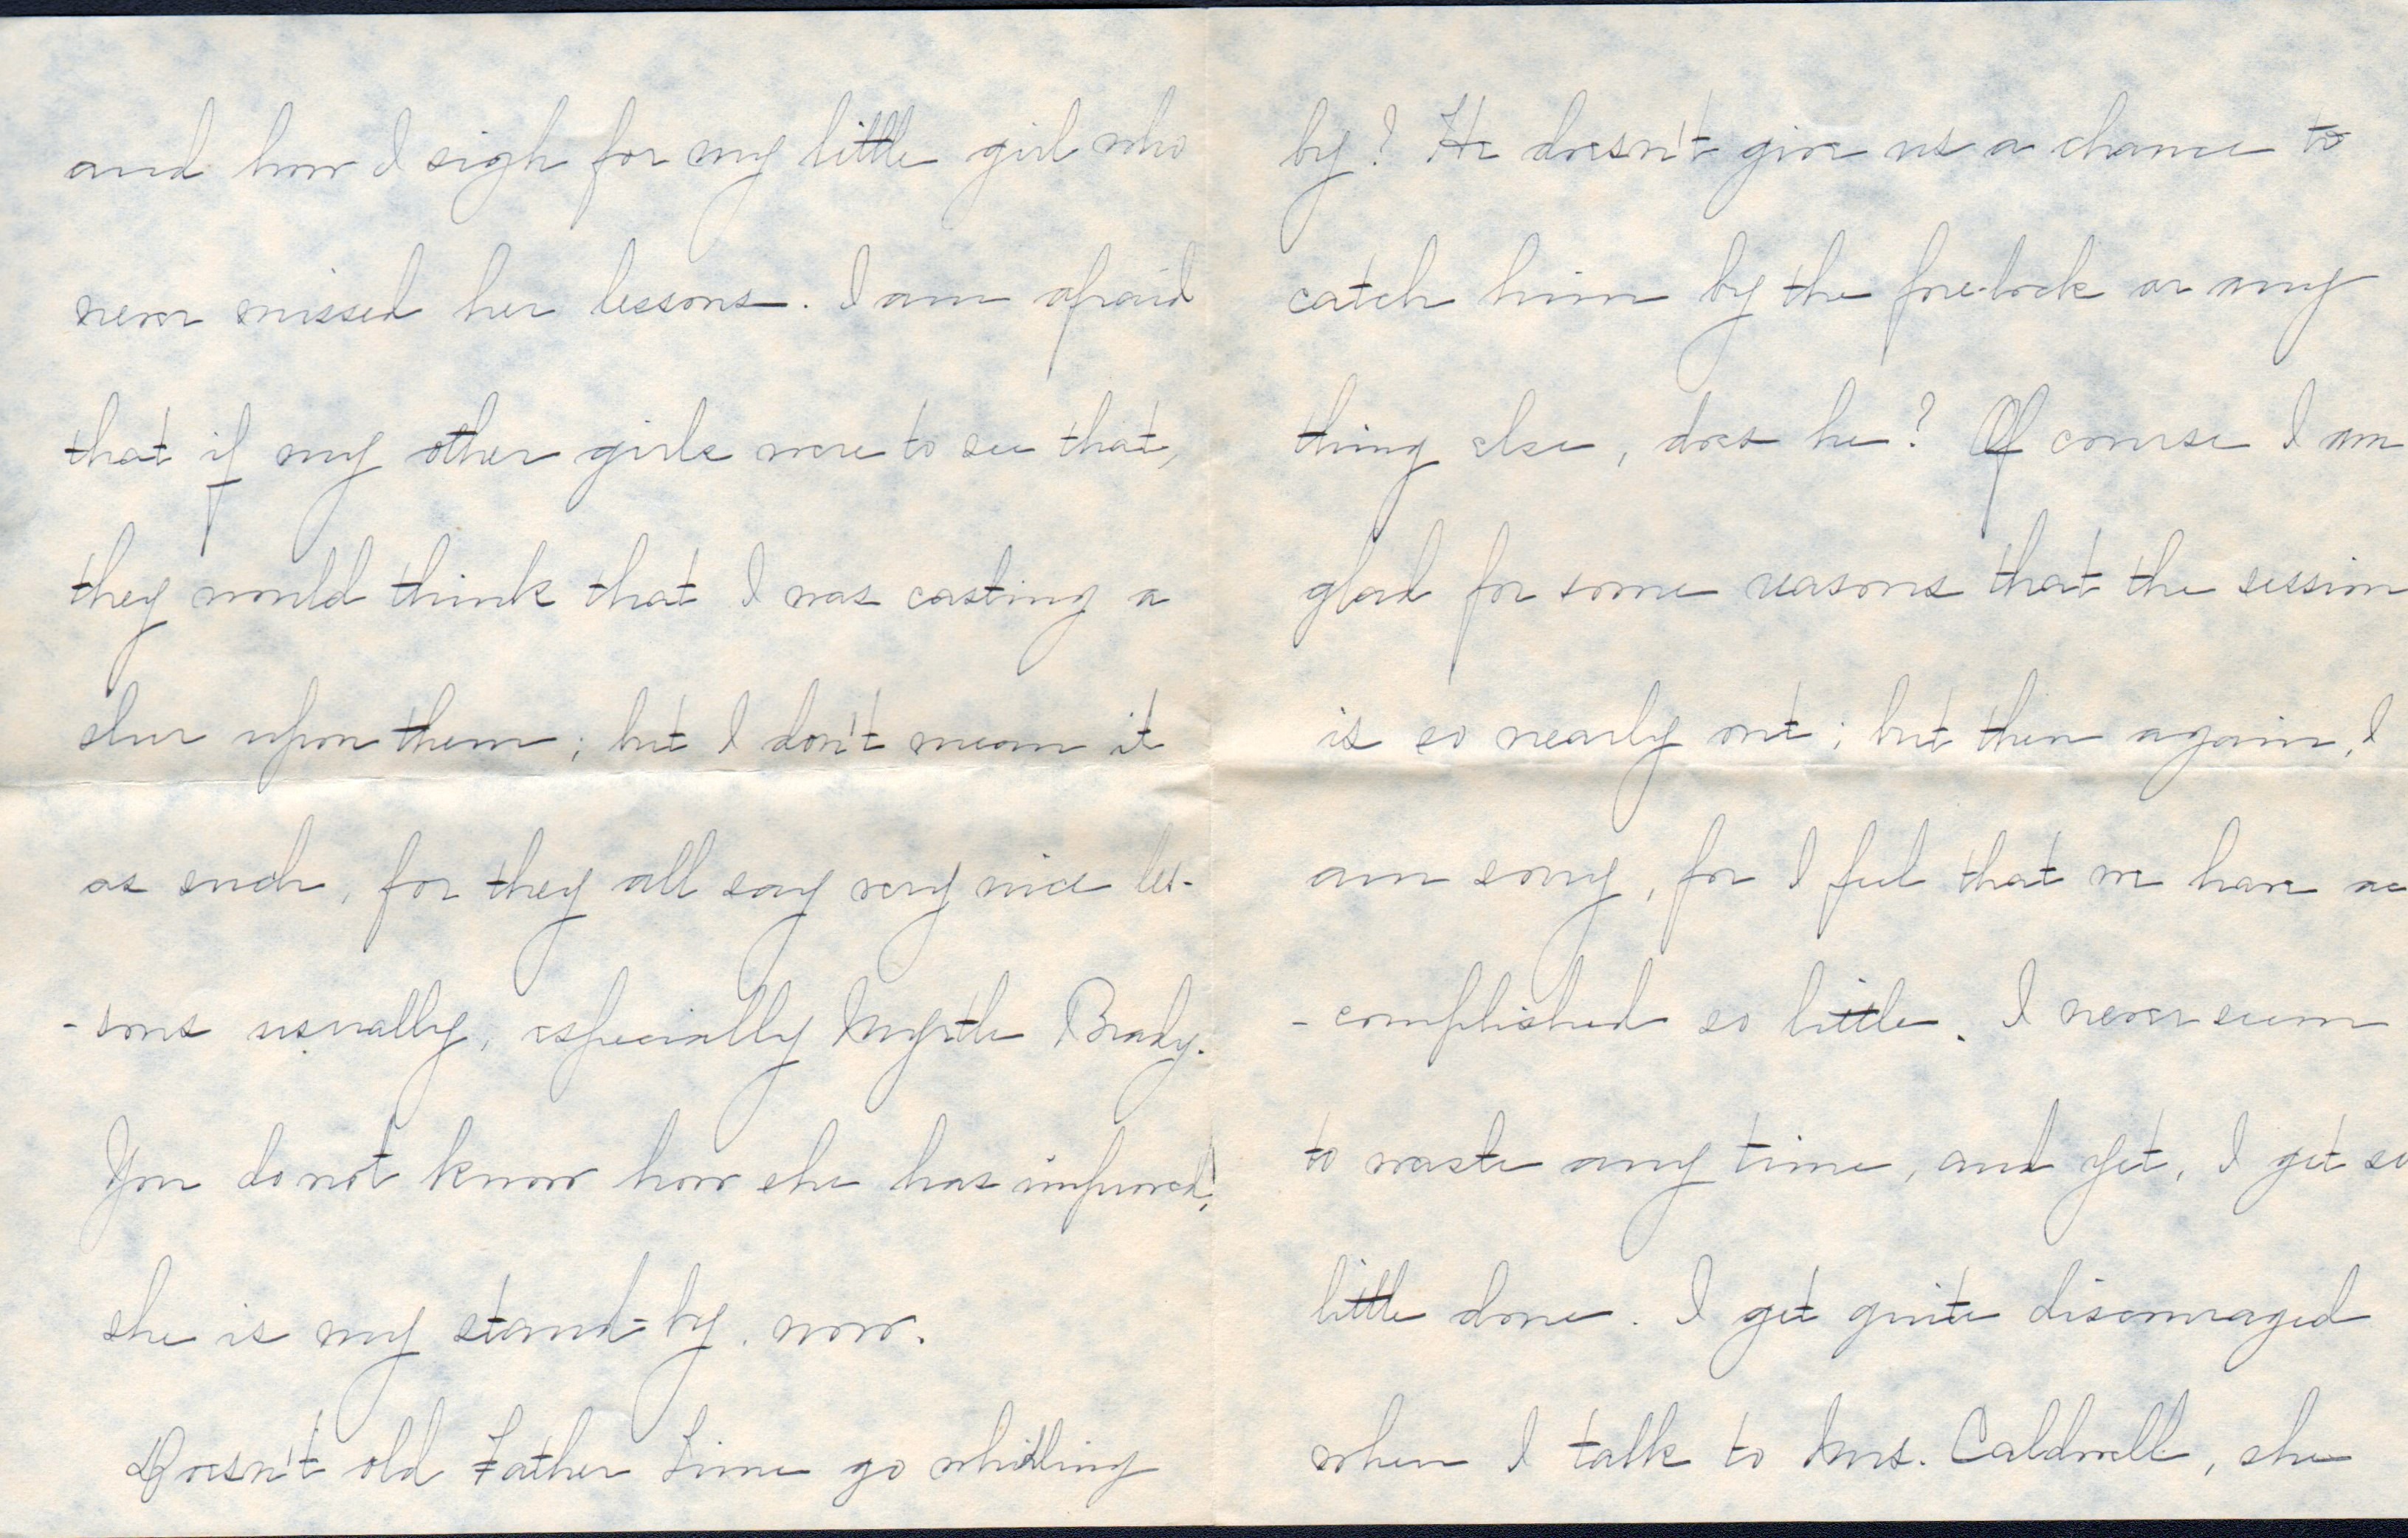 and how I sigh for my little girl who
never missed her lessons. I am afraid
that if my other girls were to see that,
they would think that I was casting a
slur upon them; but I don't mean it
as such, for they all say very nice les-
-sons usually, especially Myrtle Brady.
You do not know how she has improved;
she is my stand-by now.
Doesn't old Father Time go whirling
by? He doesn't give us a chance to
catch him by the fore-lock or any
thing else, does he? Of course I am
glad for some reasons that the session
is so nearly out; but then again, I
am sorry, for I feel that we have ac
-complished so little. I never seem
to waste any time, and yet, I get so
little done. I get quite discouraged
when I talk to Mrs. Caldwell, she